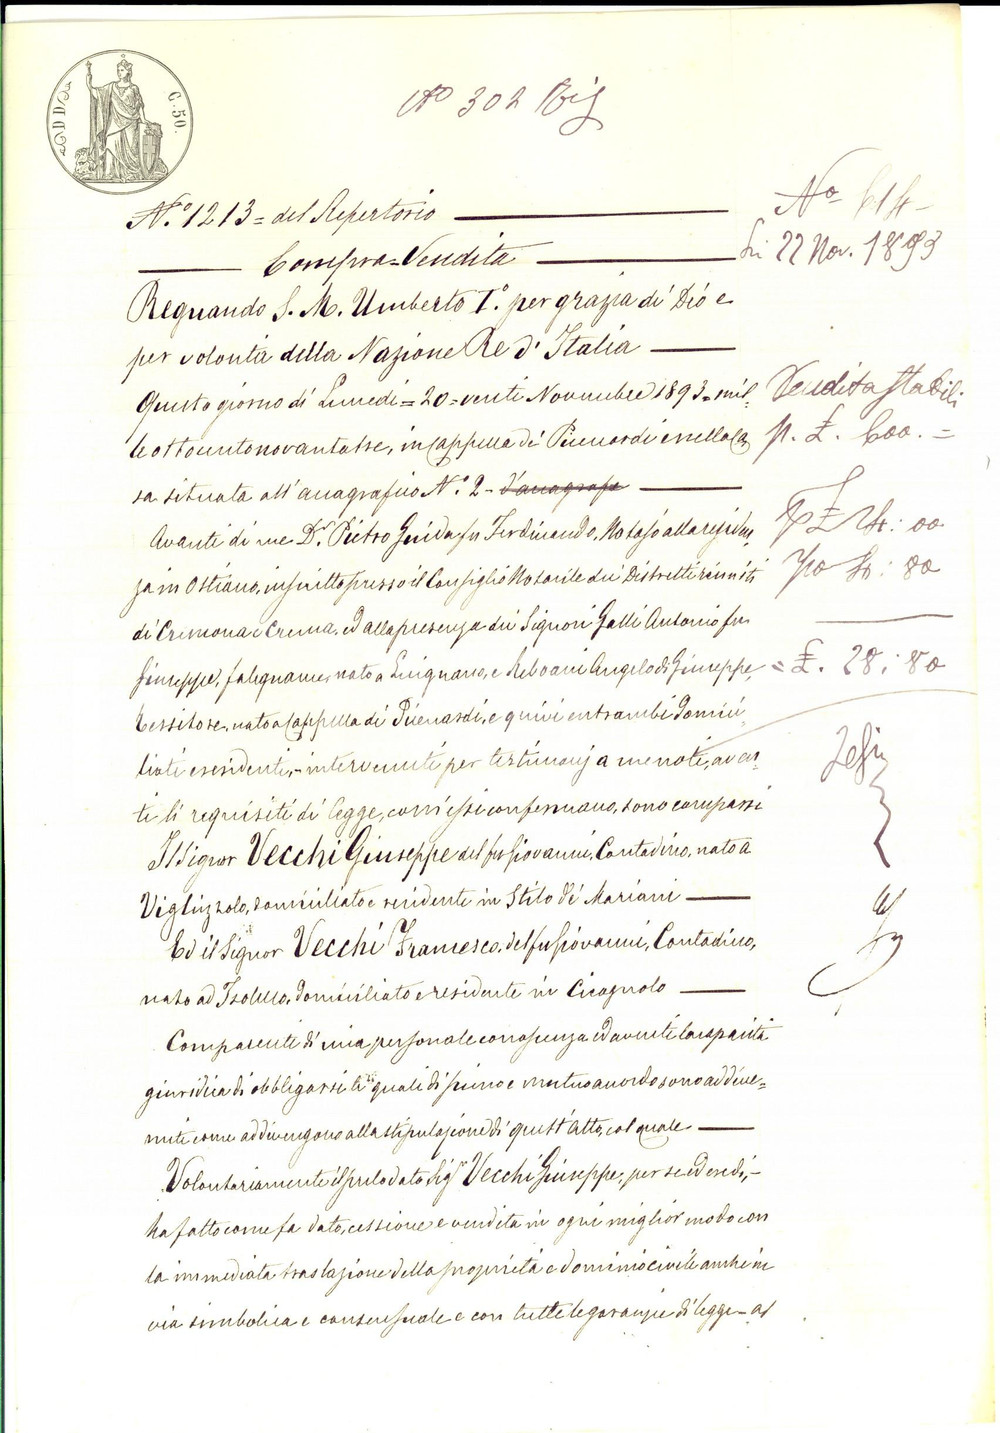 C. 50.
No 302 Bis
N.º 1213 = del Repertorio
No 614
Compra=Vendita
li 22 Nov. 1893
Regnando S. M. Umberto I.º per grazia di Dio e
per volontà della Nazione Re d'Italia
Questo giorno di Lunedì = 20 = venti Novembre 1893 = mil-
Vendita stabili
le ottocentonovantatre, in Cappella de' Picenardi e nella Ca
p. £. 600. =
sa situata all'anagrafico N.º 2 - d'anagrafe
Avanti di me D.r Pietro Guida fu Ferdinando, Notajo alla residen
za in Ostiano, inscritto presso il Consiglio Notarile dei Distretti riuniti
di Cremona e Crema, ed alla presenza dei Signori Galli Antonio fu
Giuseppe, falegname, nato a, e Angelo di Giuseppe,
= £. 28 : 80
tessitore, nato a Cappella de' Picenardi, e quivi entrambi domici-
liati e residenti, - intervenuti per testimonj a me noti, aven-
ti li requisiti di legge, com'essi confermano, sono comparsi
Il Signor Vecchi Giuseppe del fu Giovanni, Contadino, nato a
Vighizzolo, domiciliato e residente in Stilo de' Mariani
Ed il Signor Vecchi Francesco, del fu Giovanni, Contadino,
nato ad Isolello, domiciliato e residente in Cicognolo
Comparenti di mia personale conoscenza ed aventi la capacità
giuridica di obbligarsi li quali di pieno e mutuo accordo sono addive=
nuti come addivengono alla stipulazione di quest'Atto, col quale
Volontariamente il prelodato Sig.r Vecchi Giuseppe, per se ed eredi, -
ha fatto come fa dato, cessione e vendita in ogni miglior modo con
la immediata traslazione della proprietà e dominio civile anche in
via simbolica e consensuale e con tutte le garanzie di legge - al